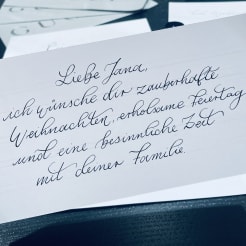 Liebe Jana,
ich wünsche dir zauberhafte
Weihnachten, erholsame Feiertage
und eine besinnliche Zeit
mit deiner Familie.